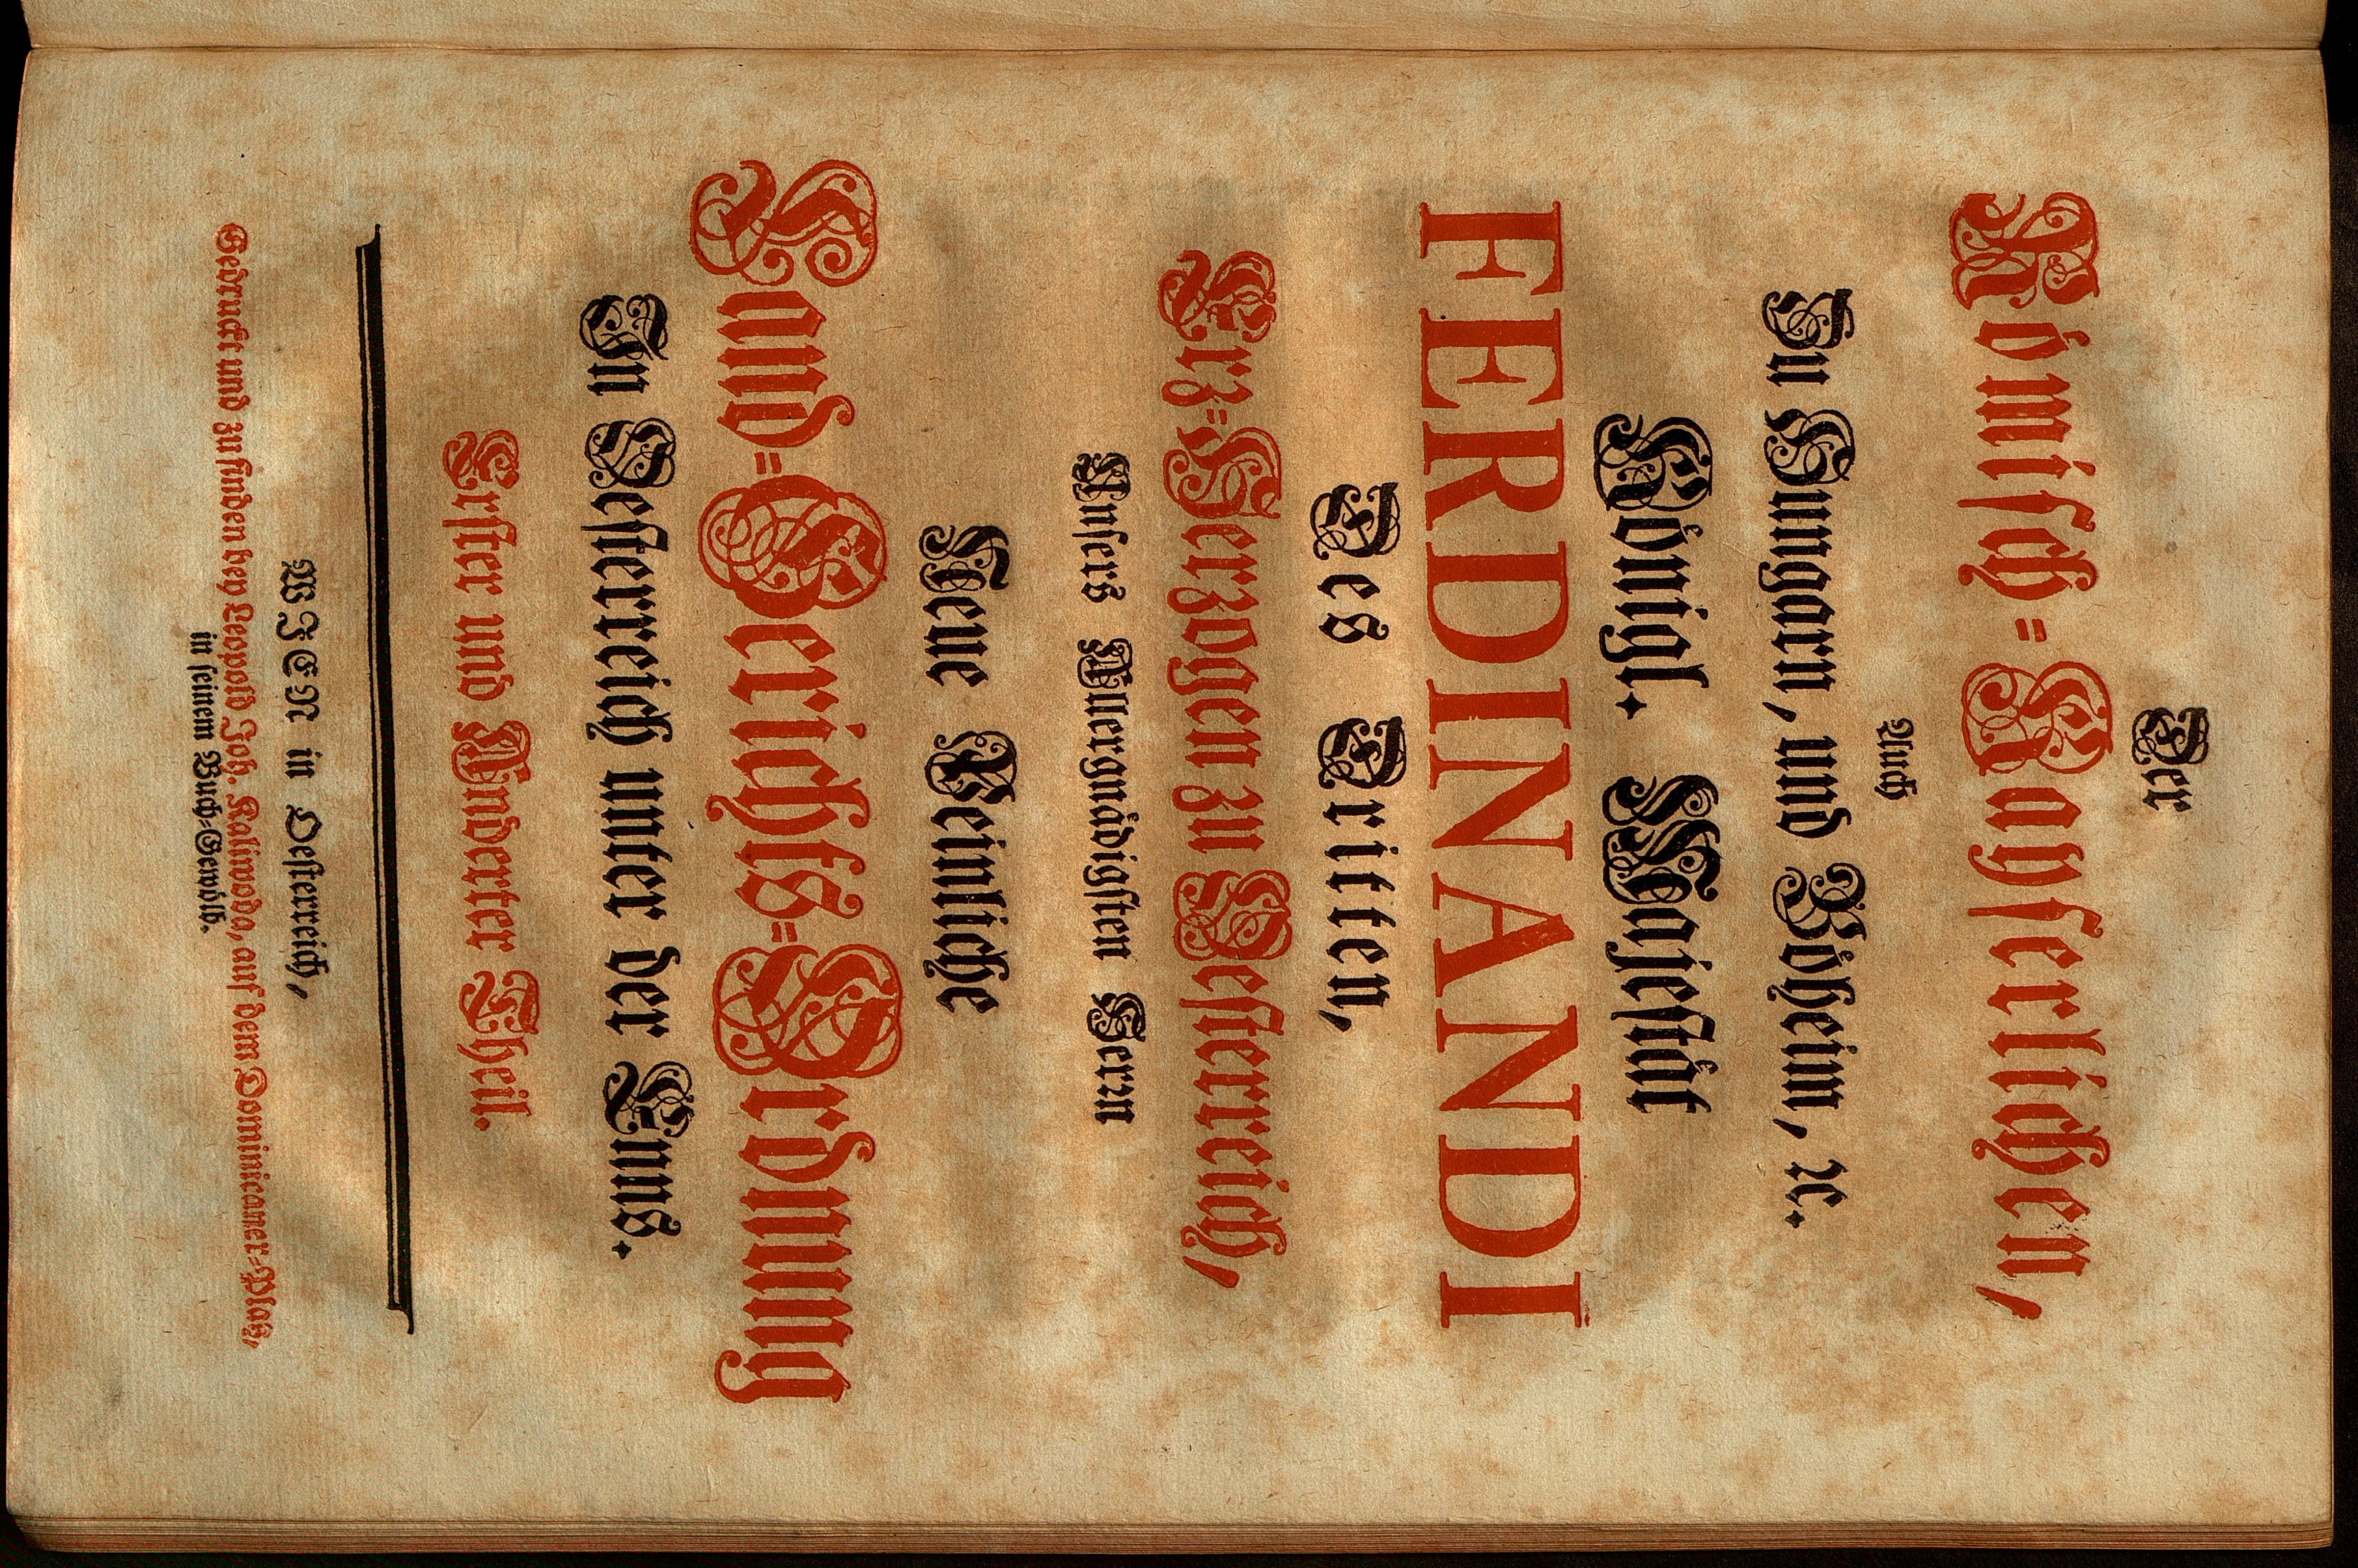 Der
Römisch-Kayserlichen,
Auch
Zu Hungarn, und Böheim, ꝛc.
Königl. Majestät
FERDINANDI
Des Dritten,
Erz-Herzogen zu Oesterreich,
Unsers Allergnädigsten Herrn
Neue Peinliche
Land-Gerichts-Ordnung
In Oesterreich unter der Enns.
Erster und Anderter Theil.
WIEN in Oesterreich,
Gedruckt und zu finden bey Leopold Joh. Kaliwoda, auf dem Dominicaner-Platz,
in seinem Buch-Gewölb.